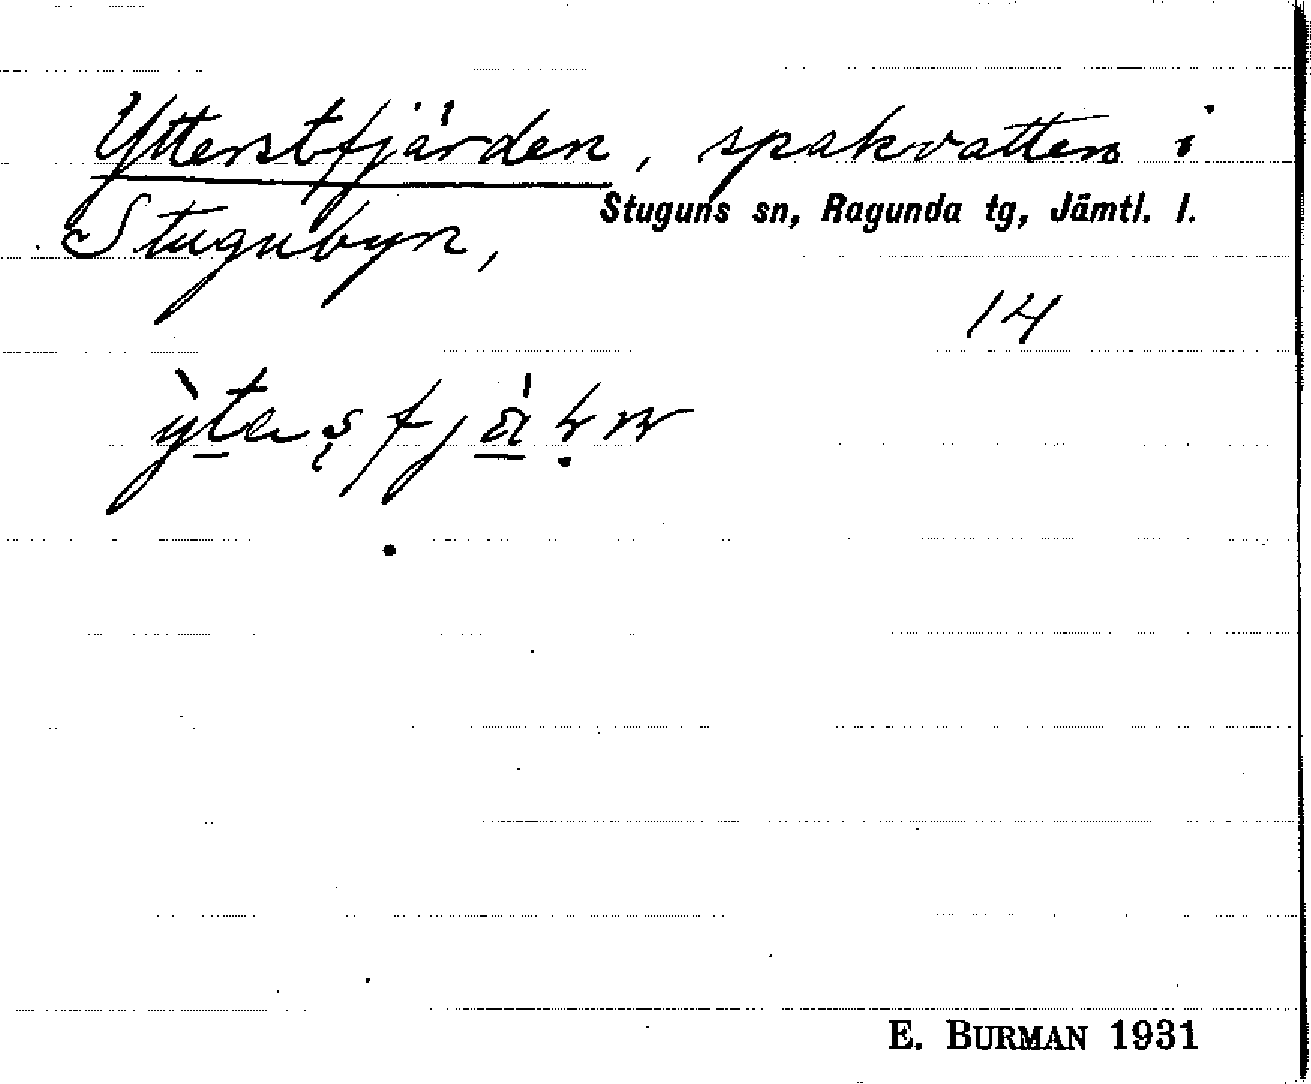 Ytterstfjärden, spakvatten i
Stuguns sn, Ragunda tg, Jämtl. l.
Stugubyn,
14
E. BURMAN 1931